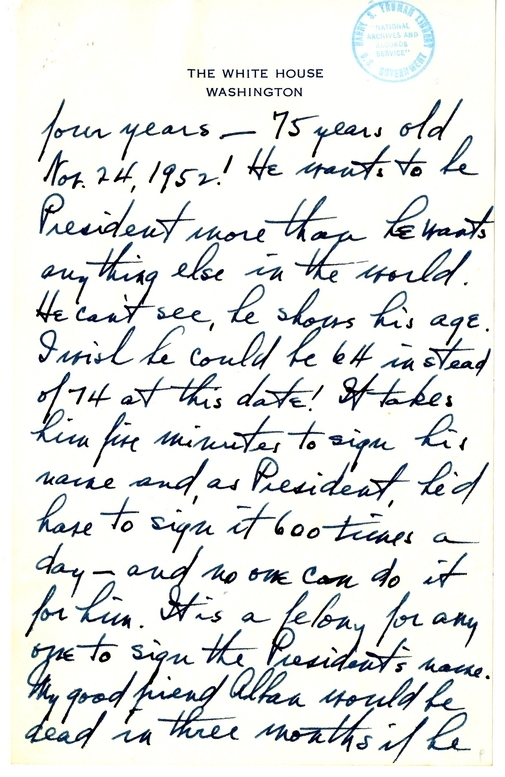 HARRY S. TRUMAN LIBRARY
"NATIONAL
ARCHIVES AND
RECORDS
SERVICE"
U.S. GOVERNMENT
THE WHITE HOUSE
WASHINGTON
four years — 75 years old
Nov. 24, 1952! He wants to be
President more than he wants
anything else in the world.
He can't see, he shows his age.
I wish he could be 64 instead
of 74 at this date! It takes
him five minutes to sign his
name and, as President, he'd
have to sign it 600 times a
day — and no one can do it
for him. It is a felony for any
one to sign the President's name.
My good friend Alban would be
dead in three months if he